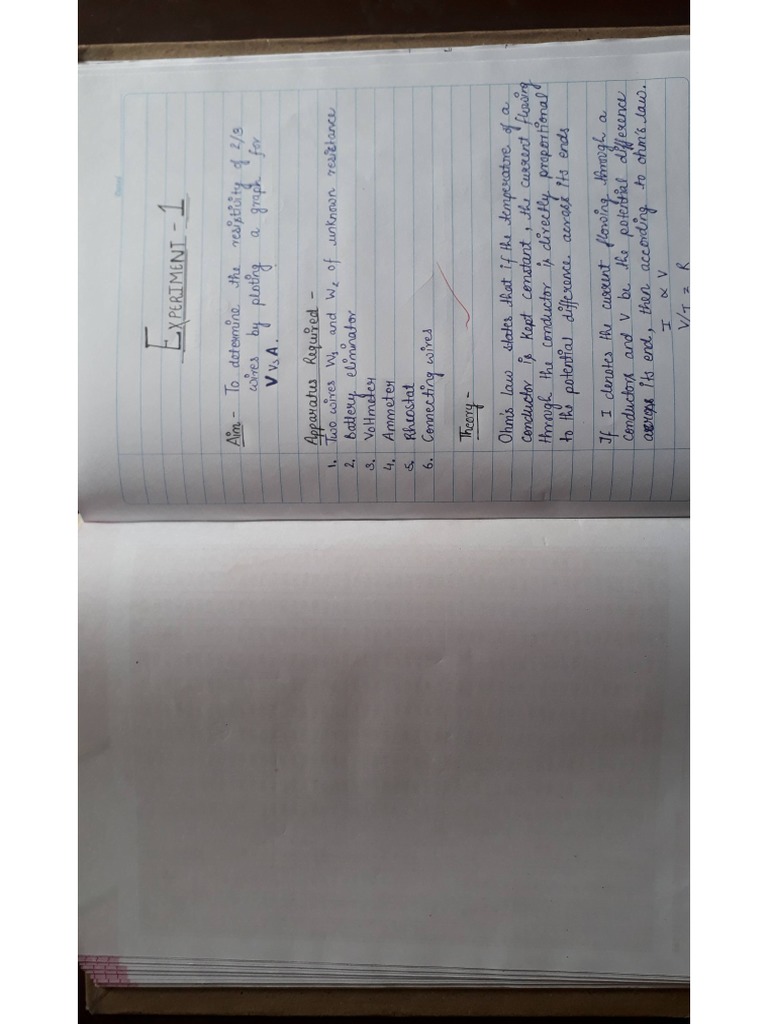 EXPERIMENT - 1
Aim - To determine the resistivity of 2/3
wires by ploting a graph for
V vs A.
Apparatus Required -
1. Two wires W1 and W2 of unknown resistance
2. Battery eliminator
3. Voltmeter
4. Ammeter
5. Rheostat
6. Connecting wires
Theory -
Ohm's law states that if the temperature of a
conductor is kept constant, the current flowing
through the conductor is directly proportional
to the potential difference across its ends
If I denotes the current flowing through a
conductors and V be the potential difference
across its end, then according to ohm's law.
I ∝ V
V/I = R